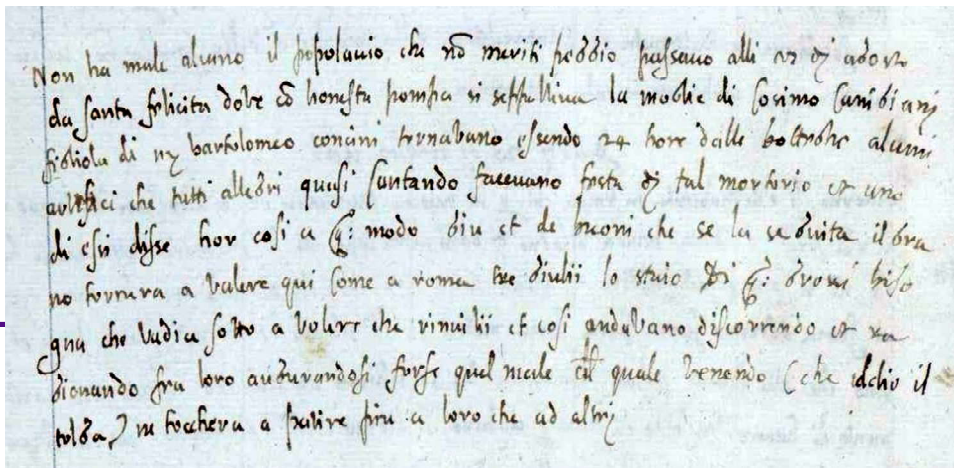 Non ha male alcuno il popolaccio che nõ meriti peggio passavo alli 25 di agosto
da santa felicita dove cõ honesta pompa si seppelliva la moglie di Cosimo
figliola di bartolomeo concini tornavano essendo 24 hore dalle alcuni
artefici che tutti allegri quasi cantando facevano festa di tal mortorio et uno
di essi disse hor cosi a modo giu et de buoni che se la seguita il gra
no tornera a valere qui come a roma tre giulii lo staio Di grossi biso
gna che vadia sotto a volere che rinvilii et cosi andavano discorrendo et ra
gionando fra loro augurandosi forse quel male il quale venendo (che iddio il
tolga) ne tocchera a patire piu a loro che ad altri